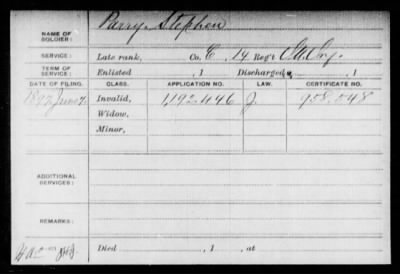 NAME OF SOLDIER: Parry, Stephen
SERVICE: Late rank, Co. E, 14 Reg't
TERM OF SERVICE: Enlisted , 1 Discharged, , 1
DATE OF FILING. CLASS. APPLICATION NO. LAW. CERTIFICATE NO.
1892 June 7, Invalid, 1,192,446 J. 958,548
Widow,
Minor,
ADDITIONAL SERVICES:
REMARKS:
Died , 1 , at